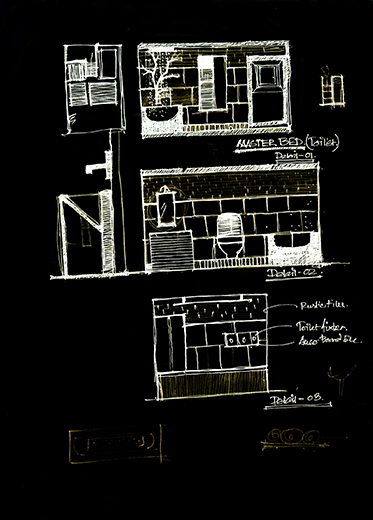 MASTER BED. (Toilet)
Detail-01.
Detail-02.
Rustic tile.
Toilet fixture.
Detail-03.